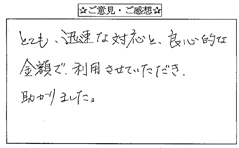 ☆ご意見・ご感想☆
とても、迅速な対応と、良心的な
金額で、利用させていただき、
助かりました。